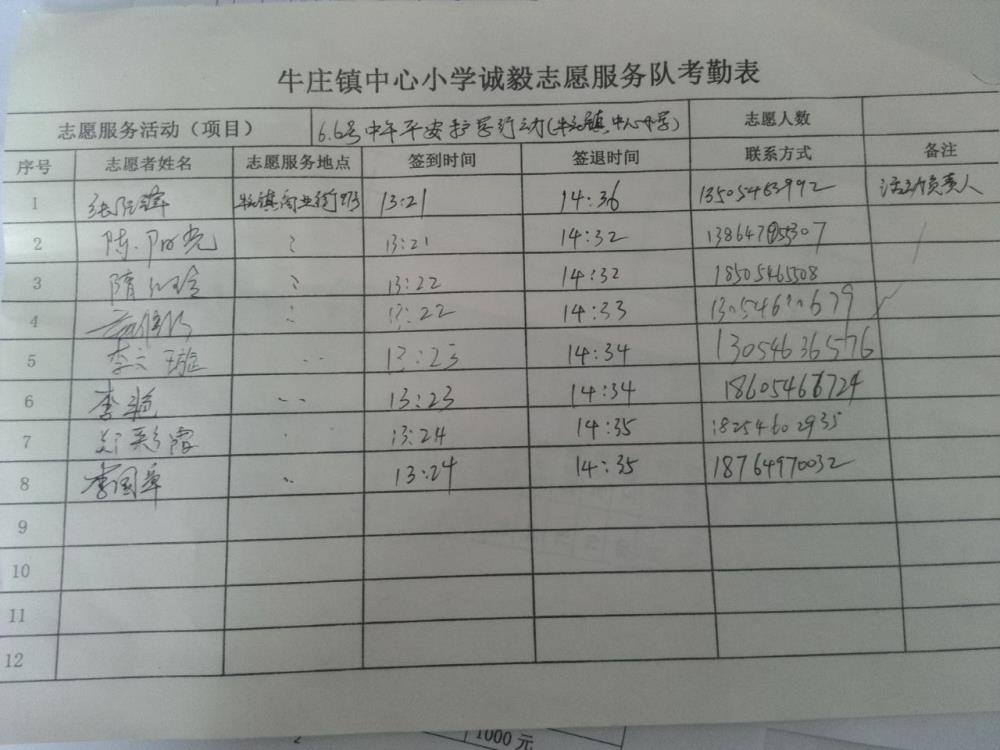 牛庄镇中心小学诚毅志愿服务队考勤表
志愿服务活动（项目） 6.6号中午平安护学行动(牛庄镇中心小学) 志愿人数
序号 志愿者姓名 志愿服务地点 签到时间 签退时间 联系方式 备注
1 13:21 14:36 13505463992 活动负责人
2 陈阳光 13:21 14:32
3 隋红玲 13:22 14:32 18505465508
4 13:22 14:33
5 李云璇 13:23 14:34 13054636576
6 李艳 13:23 14:34
7 郑彩霞 13:24 14:35 18254602935
8 李国华 13:24 14:35 18764970032
9
10
11
12
1000元